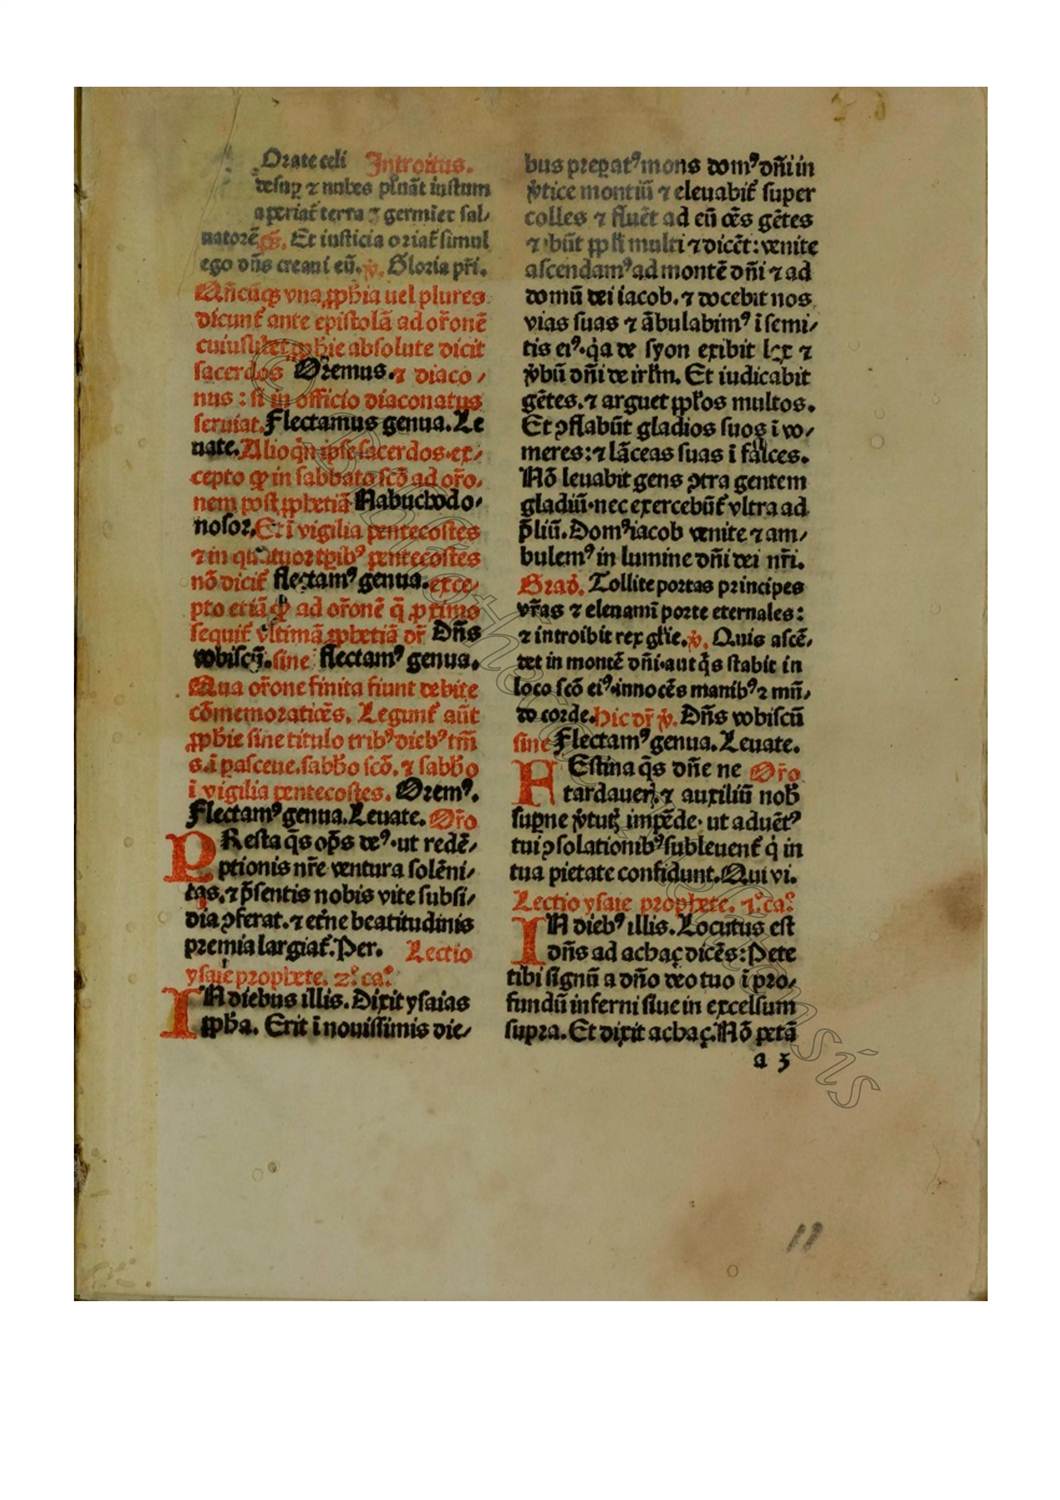 Orate celi Introitus.
desuꝑ ⁊ nubes pluāt iustum
aperiat᷑ terra ⁊ germīet sal⸗
uatorē p̄s. Et iusticia oriat᷑ simul
ego dn̄s creaui eū. ℣. Gloria pr̄i.
Quācūqꝫ vna ꝓphīa uel plures
dicunt᷑ ante epistolā ad or̄onē
cuiuslibet ꝓphīe absolute dicit
sacerdos Oremus. ⁊ diaco⸗
nus: si in officio diaconatus
seruiat. Flectamus genua. Le
uate. Alioqn̄ ipse sacerdos. ex⸗
cepto ꝙ in sabbato scō ad or̄o.
nem post ꝓphetiā Nabuchodo⸗
nosor. Et ī vigilia pentecostes
⁊ in quatuor tꝑibꝰ pentecostes
nō dicit᷑ flectamꝰ genua. exce⸗
pto etiā ꝙ ad or̄onē q̄ ꝓximo
sequit᷑ vltimā ꝓphetiā dr̄ Dn̄s
vobiscū. sine flectamꝰ genua.
Qua or̄one finita fiunt debite
cōmemoratiōes. Legunt᷑ aūt
ꝓphīe sine titulo tribꝰ diebꝰ tm̄
s. ī pasceue. sabb̄o scō. ⁊ sabb̄o
ī vigilia pentecostes. Oremꝰ.
Flectamꝰ genua. Leuate. Or̄o
PResta q̄s op̄s deꝰ. ut redē⸗
ptionis nr̄e ventura solēni⸗
tas. ⁊ p̄sentis nobis vite subsi⸗
dia ꝯferat. ⁊ etn̄e beatitudinis
premia largiat᷑. Per. Lectio
ysaie prophete. 2ꝰ. caꝰ.
IN diebus illis. Dixit ysaias
ꝓph̄a. Erit ī nouissimis die⸗
bus preparatꝰ mons domꝰ dn̄i in
v̓tice montiū ⁊ eleuabit᷑ super
colles ⁊ fluēt ad eū oēs gētes
⁊ ibūt ppl̄i multi ⁊ dicēt: venite
ascendamꝰ ad montē dn̄i ⁊ ad
domū dei iacob. ⁊ docebit nos
vias suas ⁊ ābulabimꝰ ī semi⸗
tis eiꝰ. q̓a de syon exibit lex ⁊
v̓bū dn̄i de irl̄m. Et iudicabit
gētes. ⁊ arguet ppl̄os multos.
Et ꝯflabūt gladios suos ī vo⸗
meres: ⁊ lāceas suas ī falces.
Nō leuabit gens ꝯtra gentem
gladiū. nec exercebūt᷑ vltra ad
p̄liū. Domꝰ iacob venite ⁊ am⸗
bulemꝰ in lumine dn̄i dei nr̄i.
Grad̄. Tollite portas principes
vr̄as ⁊ eleuamī porte eternales:
⁊ introibit rex gl̄ie. ℣. Quis ascē⸗
det in montē dn̄i. aut q̄s stabit in
loco scō eiꝰ. innocēs manibꝰ ⁊ mū⸗
do corde. hic dr̄ ℣. Dn̄s vobiscū
sine Flectamꝰ genua. Leuate.
HEstina q̄s dn̄e ne Or̄o
tardauer̄. ⁊ auxiliū nob̄
supne v̓tutꝭ impēde. ut aduētꝰ
tui ꝯsolationibꝰ subleuent᷑ q̓ in
tua pietate confidunt. Qui vi.
Lectio ysaie prophete. 7ꝰ. caꝰ.
IN diebꝰ illis. Locutus est
dn̄s ad achaȥ dicēs: Pete
tibi signū a dn̄o deo tuo ī pro⸗
fundū inferni siue in excelsum
supra. Et dixit achaȥ. Nō petā
a 3
11